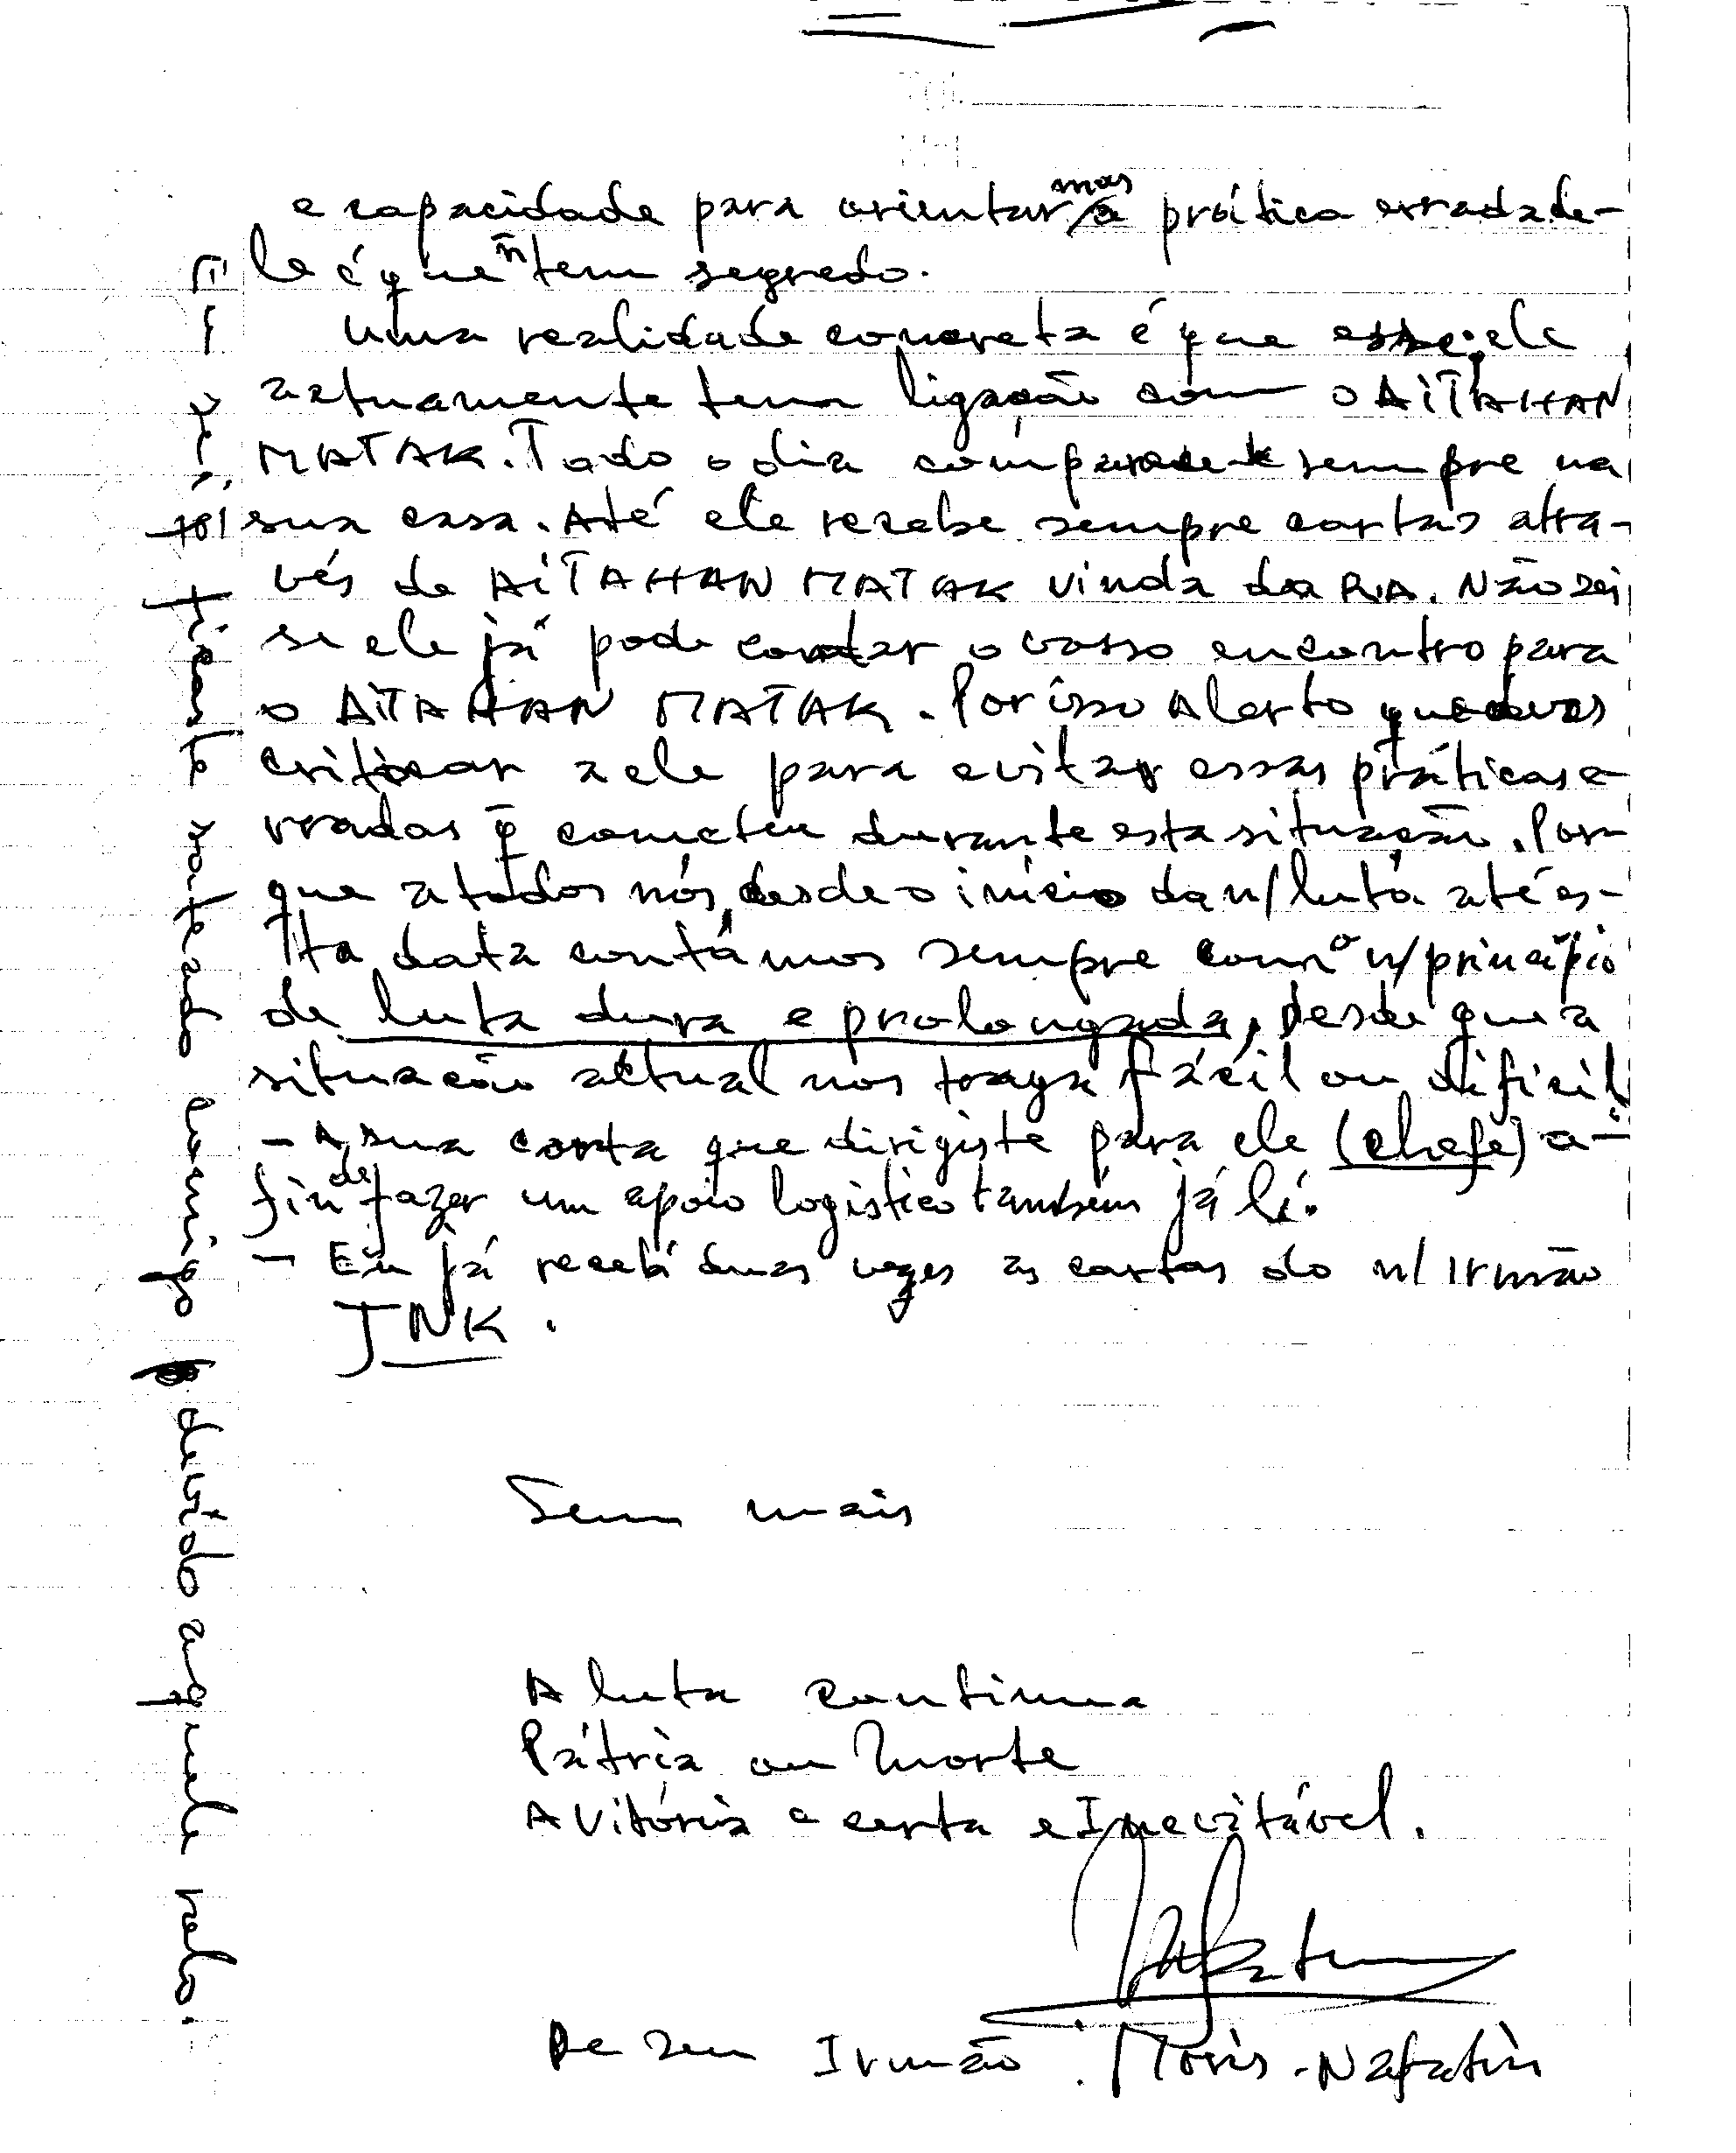 e capacidade para orientar mas a prática errada de-
le é que ñ tem segredo.
Uma realidade concreta é que esse, ele
actuamente tem ligação com o AITAHAN
MATAK. Todo o dia comparece sempre na
sua casa. Até ele recebe sempre cartas atra-
vés de AITAHAN MATAK vinda da R.A. Não sei
se ele já pode contar o vosso encontro para
o AITAHAN MATAK. Por isso Alerto que deves
criticar a ele para evitar essas práticas e-
rradas q̄ cometeu durante esta situação. Por-
que a todos nós, desde o início da n/luta até es-
ta data contámos sempre com o n/princípio
de luta dura e prolongada, desde que a
situação actual nos traga fácil ou difícil
- A sua carta que dirigiste para ele (chefe) a-
fim de fazer um apoio logístico também já li.
- Eu já recebi duas vezes as cartas do n/Irmão
JNK.
Sem mais
A luta continua
Pátria ou Morte
A Vitória é certa e Inevitável.
De seu Irmão Moris. Nafatin
contacto comigo devido aquele relo.